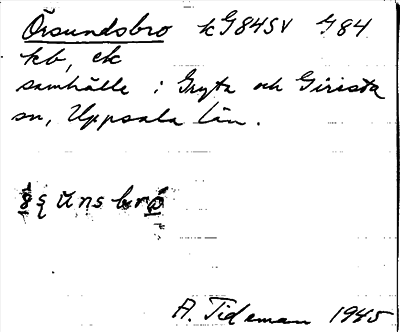 Örsundsbro k G84SV G84
kb, ek
samhälle i Gryta och Girista
sn, Uppsala län.
unsbrω
A. Tideman 1945